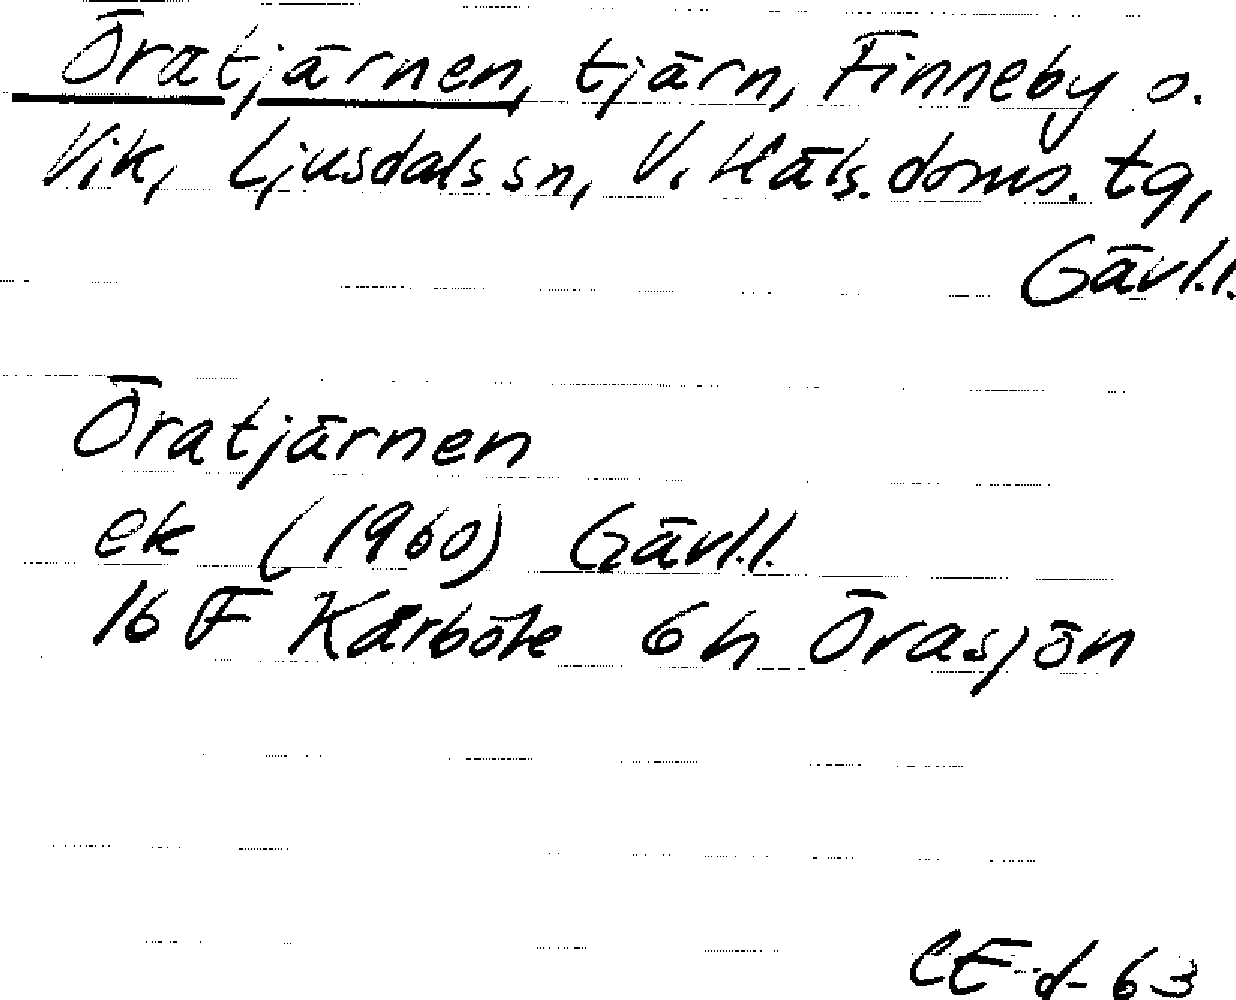 Öratjärnen, tjärn, Finneby o.
Vik, Ljusdals sn, V. Häls. doms. tg,
Gävl.l.
Öratjärnen
ek (1960) Gävl.l.
16 F Kårböle 6h Örasjön
CE-d-63